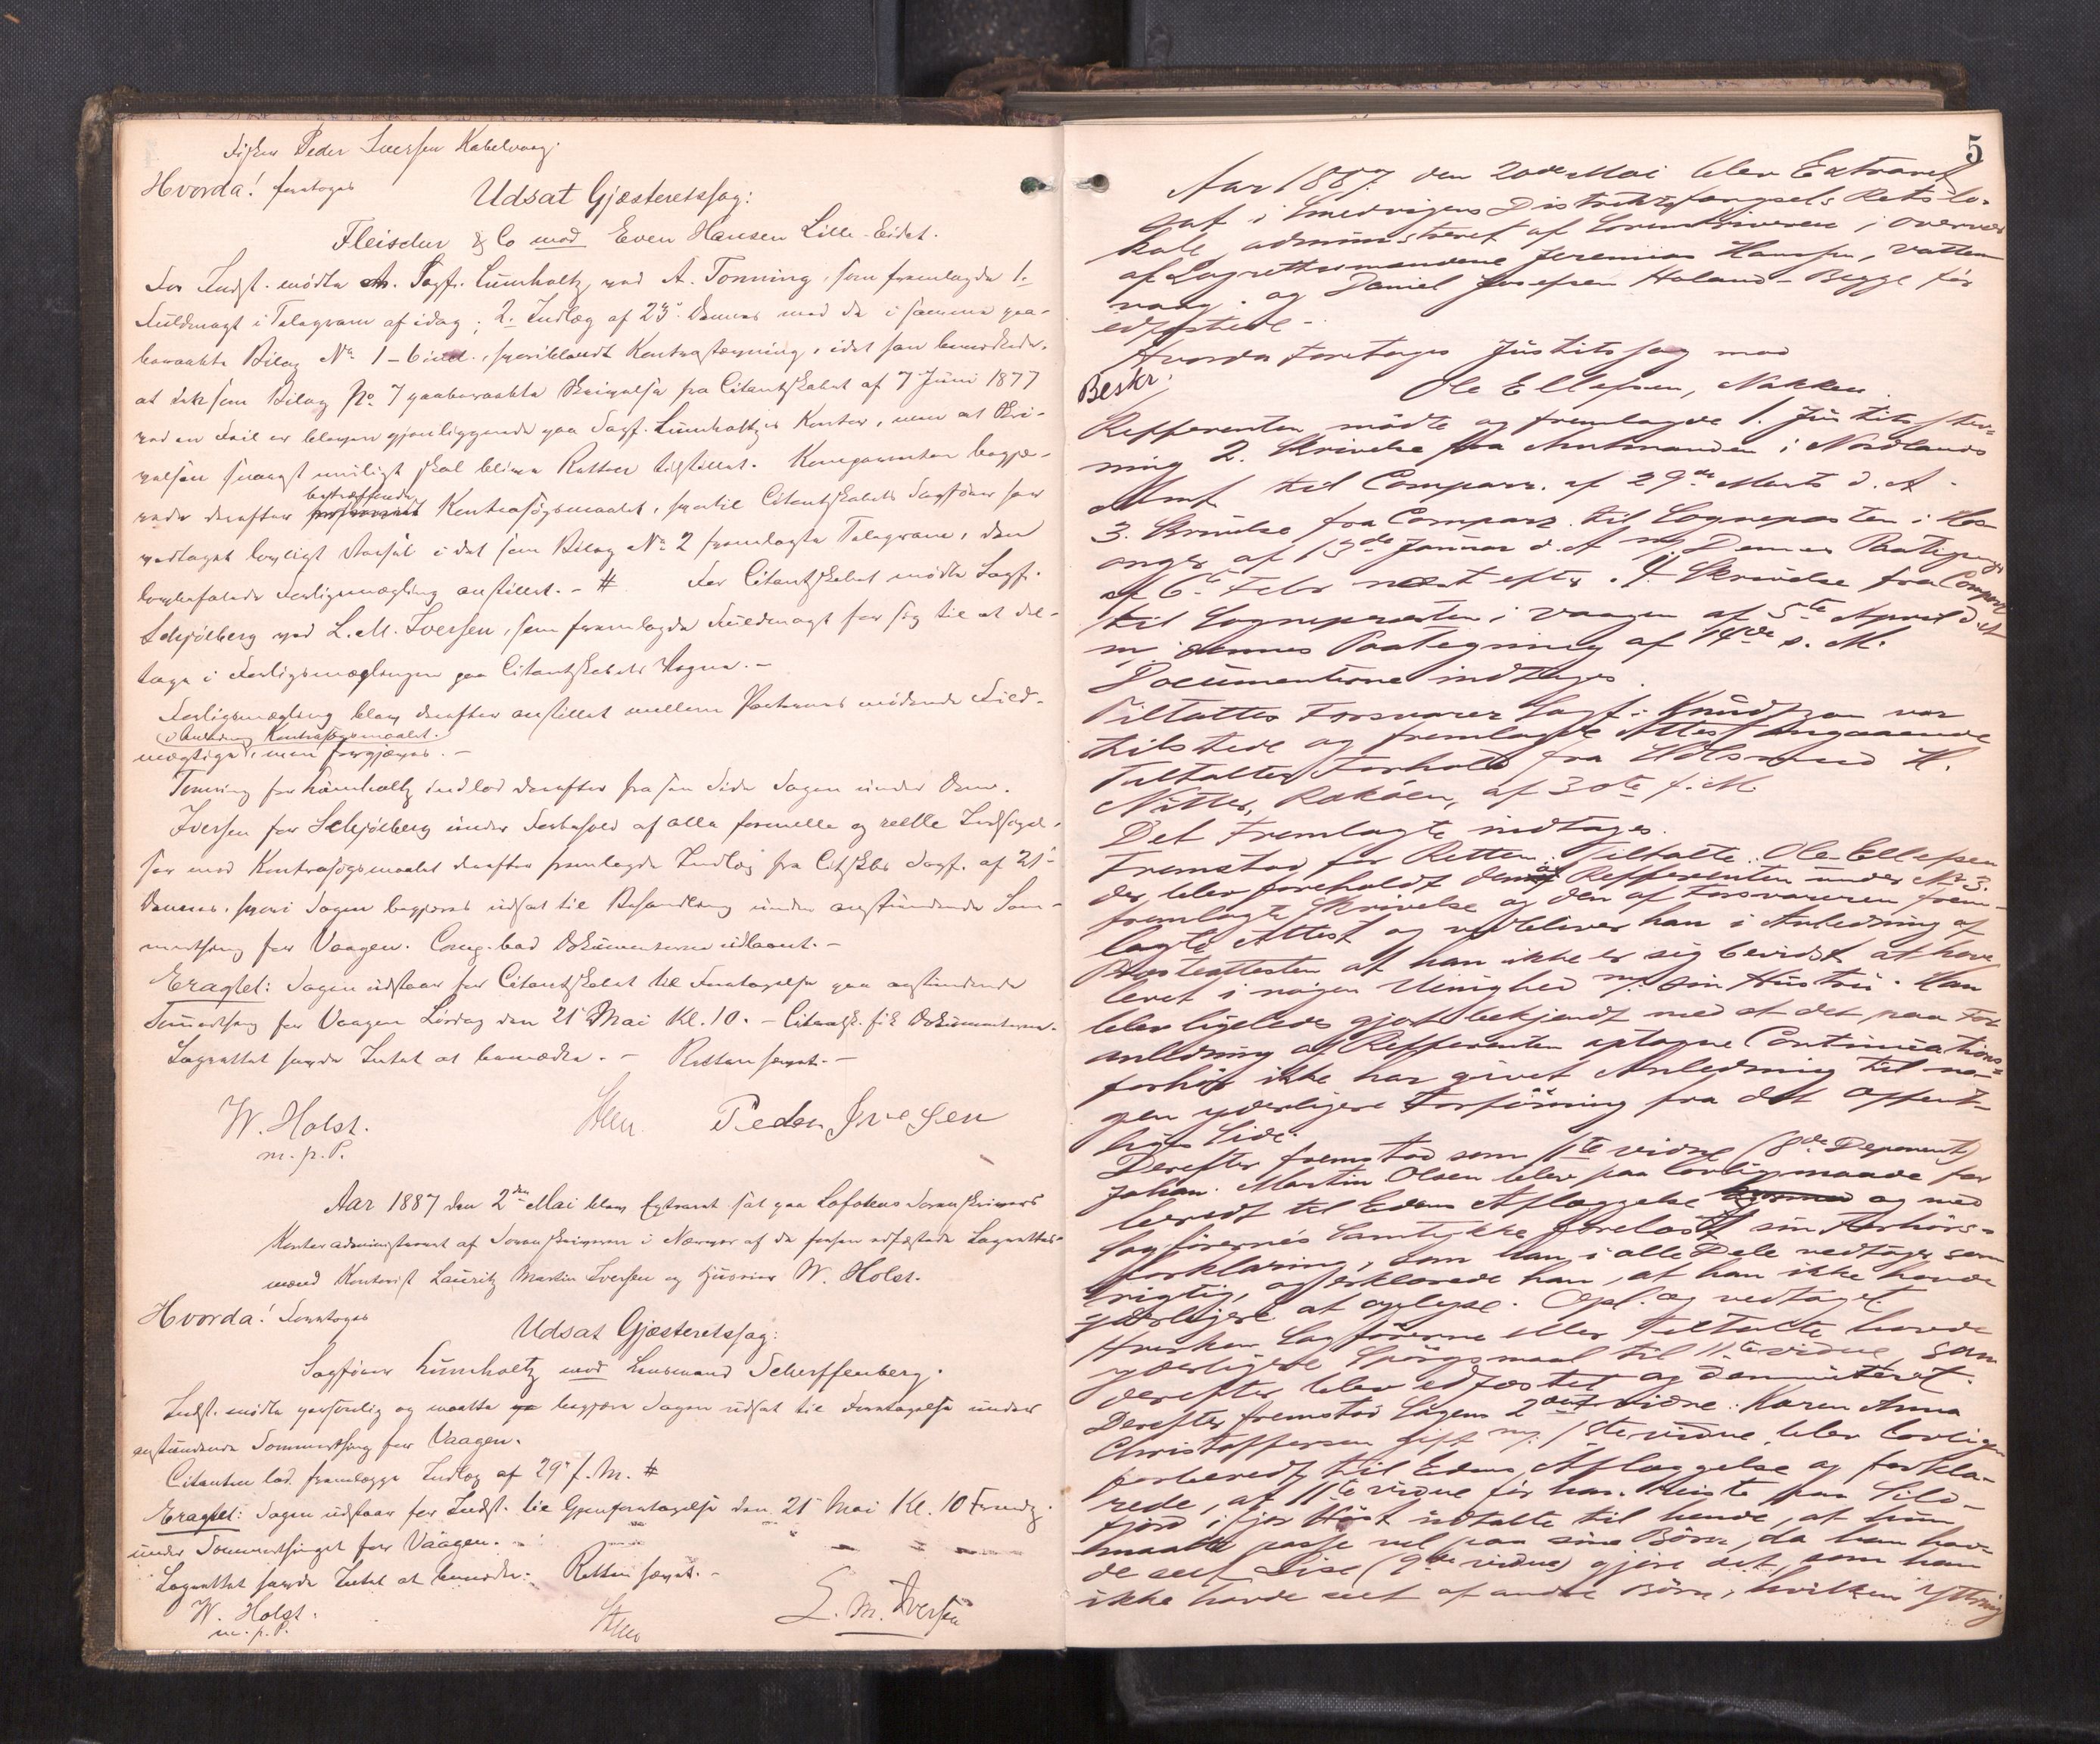 Fisker Peder Iversen Kabelvaag.
Hvorda! foretoges
Udsat Gjæsteretssag:
Fleischer & Co mod Even Hansen Lille-Eidet.
For Indst. mødte Sagf. Lumholtz ved A. Tonning, som fremlagde 1.
Fuldmagt i Telegram af idag; 2. Indlæg af 23' dennes med de i samme paa-
beraabte Bilag No 1-6 incl., hvoriblandt Kontrastævning, idet han bemærkede,
at det som Bilag No. 7 paaberaabte Skrivelse fra Citantskabet af 7 Juni 1877
ved en Feil er bleven gjenliggende paa Sagf. Lumholtz's Kontor, men at Skri-
velsen snarest muligt skal blive Retten tilstillet. Komparenten begjæ-
rede derefter betræffende Kontrasøgsmaalet, hvortil Citantskabets Sagfører har
vedtaget lovligt Varsel i det som Bilag No 2 fremlagte Telegram, den
lovbefalede Forligsmægling anstillet. - # For Citantskabet mødte Sagf.
Schjölberg ved L. M. Iversen, som fremlagde Fuldmagt for sig til at del-
tage i Forligsmæglingen paa Citantskabets Vegne. -
Forligsmægling blev derefter anstillet mellem Parternes mødende Fuld-
i Anledning Kontrasøgsmaalet.
mægtige, men forgjæves. -
Tonning for Lumholtz indlod derefter fra sin Side Sagen under Dom.
Iversen for Schjölberg under Forbehold af alle formelle og reelle Indsigel-
ser mod Kontrasøgsmaalet derefter fremlagde Indlæg fra Citskbs Sagf. af 21'
dennes, hvori Sagen begjæres udsat til Behandling under anstundende Som-
merthing for Vaagen. Comp. bad Dokumenterne udlaant. -
Eragtet: Sagen udstaar for Citantskabet til Foretagelse paa anstundende
Sommerthing for Vaagen Lørdag den 21' Mai Kl. 10. - Citantsk. fik Dokumenterne.
Lagrettet havde Intet at bemærke. - Retten hævet. -
W. Holst. Peder Iversen
m. p. P.
Aar 1887 den 2den Mai blev Extraret sat paa Lofotens Sorenskrivers
Kontor administreret af Sorenskriveren i Nærvær af de forhen edfæstede Lagrettes-
mænd Kontorist Lauritz Martin Iversen og Huseier W. Holst.
Hvorda! Foretoges
Udsat Gjæsteretssag:
Sagfører Lumholtz mod Lensmand Scherffenberg.
Indst. mødte personlig og maatte begjære Sagen udsat til Foretagelse under
anstundende Sommerthing for Vaagen.
Citanten lod fremlægge Indlæg af 29' f. M. #
Eragtet: Sagen udstaar for Indst. til Gjenforetagelse den 21' Mai Kl. 10 Formdg.
under Sommerthinget for Vaagen.
Lagrettet havde Intet at bemærke. Retten hævet. -
W. Holst. L. M. Iversen
m. p. P.
5
Aar 1887 den 20de Mai blev Extraret
sat i Smedvigens Distriktsfængsels Retslo-
kale, administreret af Sorenskriveren i Overvær
af Lagrettesmændene Jeremias Hansen, Vatter-
vaag. og Daniel Josefsen Holand - Begge før
edfæstede -
Hvorda foretoges Justitssag mod
Beskr.
Ole Ellefsen, Nakken.
Refferenten mødte og fremlagde 1. Justitsstev-
ning 2. Skrivelse fra Amtmanden i Nordlands
Amt til Compar. af 29de Marts d. A -
3. Skrivelse fra Compar. til Sognepresten i
anger af 13de Januar d. A m/ Dennes Paategning
af 6te Febr næst efter. 4. Skrivelse fra Compar.
til Sognepresten i Vaagen af 5te April d. A
m/ dennes Paategning af 14de s. M.
Documenterne indtages.
Tiltaltes Forsvarer Sagf: Knudtzon var
tilstede og fremlagde Attest angaaende
Tiltaltes Forhold fra
af 30te f. M.
Det Fremlagte indtages.
Fremstod for Retten: Tiltalte Ole Ellefsen
der blev foreholdt den af Refferenten under No 3.
fremlagte Skrivelse og den af Forsvareren frem-
lagte Attest og vedbliver han i Anledning af
Presteattesten at han ikke er sig bevidst at have
levet i nogen Uenighed m/ sin Hustru. Han
blev ligeledes gjort bekjendt med at det paa For-
anledning af Refferenten optagne Continuations-
forhør ikke har givet Anledning til no-
gen yderligere Forføining fra det Offent-
liges Side.
Derefter fremstod som 11te Vidne (8de Deponent)
Johan Martin Olsen blev paa lovlig maade for
beredt til Edens Aflæggelse og med
Sagførernes Samtykke forelæst sin Forhørs-
forklaring, som han i alle Dele vedtager som
rigtig, og erklærede han, at han ikke havde
yderligere at oplyse. Opl. og vedtaget.
Hverken Sagførerne eller Tiltalte havde
yderligere Spørgsmaal til 11te Vidne, som
derefter blev edfæstet og demitteret.
Derefter fremstod Sagens 2det Vidne: Karen Anna
Christoffersen gift m/ 1ste Vidne, blev lovlig
forberedt til Edens Aflæggelse og forkla-
rede, at 11te Vidne før han reiste paa Sild-
fjord i fjor Høst udtalte til hende, at hun
maatte passe vel paa sine Børn, da han hav-
de seet Lise (9de Vidne) gjøre det, som han
ikke havde seet af andre Børn, hvilken Yttring